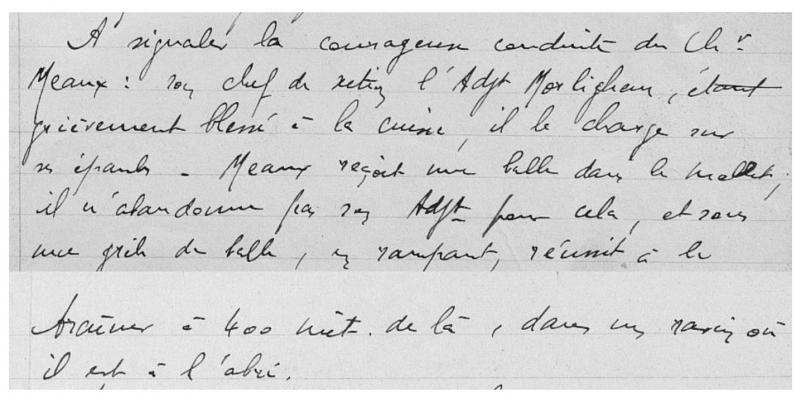 A signaler la courageuse conduite du Chr
Meaux : son chef de section l'Adjt Morlighem, étant
grièvement blessé à la cuisse, il le charge sur
ses épaules - Meaux reçoit une balle dans le mollet ;
il n'abandonne pas son Adjt pour cela, et sous
une grêle de balles, en rampant, réussit à le
traîner à 400 mèt. de là, dans un ravin où
il est à l'abri.